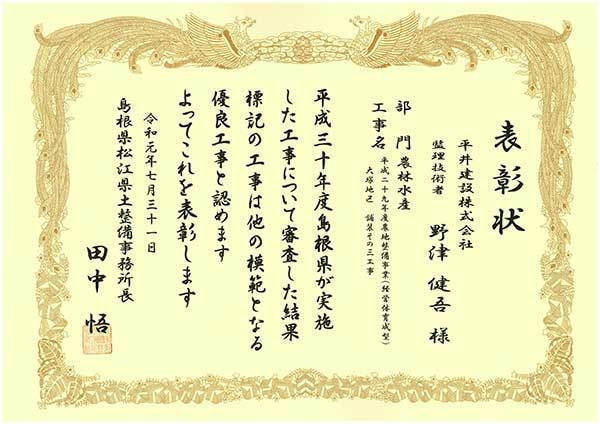 表彰状
平井建設株式会社
監理技術者 野津 健吾 様
部 門 農林水産
工事名 平成二十九年度農地整備事業(経営体育成型)
大塚地区 舗装その三工事
平成三十年度島根県が実施
した工事について審査した結果
標記の工事は他の模範となる
優良工事と認めます
よってこれを表彰します
令和元年七月三十一日
島根県松江県土整備事務所長
田中 悟